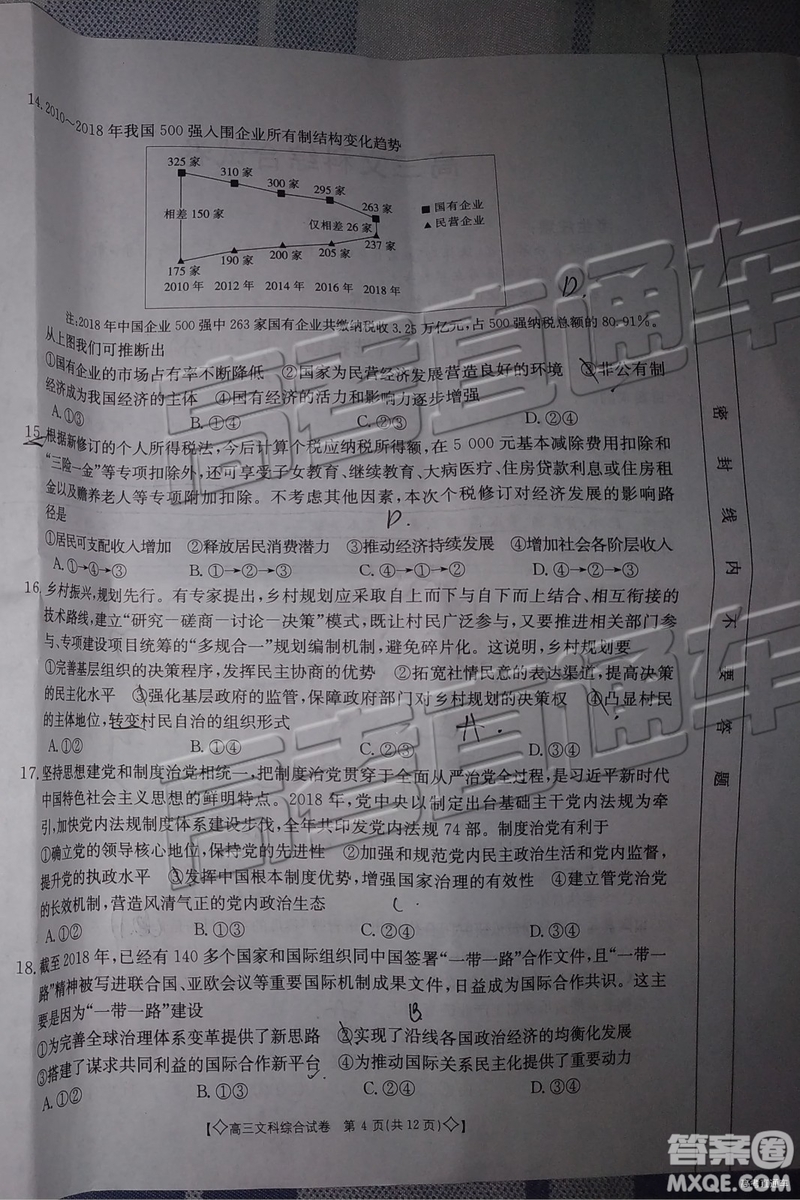 14. 2010～2018 年我国 500 强入围企业所有制结构变化趋势
325 家
310 家
300 家
295 家
263 家
相差 150 家
仅相差 26 家
■ 国有企业
▲ 民营企业
175 家
190 家
200 家
205 家
237 家
2010 年 2012 年 2014 年 2016 年 2018 年
D.
注:2018 年中国企业 500 强中 263 家国有企业共缴纳税收 3.25 万亿元,占 500 强纳税总额的 80.91%。
从上图我们可推断出
①国有企业的市场占有率不断降低 ②国家为民营经济发展营造良好的环境 ③非公有制
经济成为我国经济的主体 ④国有经济的活力和影响力逐步增强
A.①③ B.①④ C.②③ D.②④
15. 根据新修订的个人所得税法,今后计算个税应纳税所得额,在 5 000 元基本减除费用扣除和
“三险一金”等专项扣除外,还可享受子女教育、继续教育、大病医疗、住房贷款利息或住房租
金以及赡养老人等专项附加扣除。不考虑其他因素,本次个税修订对经济发展的影响路
径是
D.
①居民可支配收入增加 ②释放居民消费潜力 ③推动经济持续发展 ④增加社会各阶层收入
A. ①→④→③ B. ①→②→③ C. ④→①→③ D. ④→②→③
16. 乡村振兴,规划先行。有专家提出,乡村规划应采取自上而下与自下而上结合、相互衔接的
技术路线,建立“研究－磋商－讨论－决策”模式,既让村民广泛参与,又要推进相关部门参
与、专项建设项目统筹的“多规合一”规划编制机制,避免碎片化。这说明,乡村规划要
①完善基层组织的决策程序,发挥民主协商的优势 ②拓宽社情民意的表达渠道,提高决策
的民主化水平 ③强化基层政府的监管,保障政府部门对乡村规划的决策权 ④凸显村民
的主体地位,转变村民自治的组织形式
A.
A.①② B.①④ C.②③ D.③④
17. 坚持思想建党和制度治党相统一,把制度治党贯穿于全面从严治党全过程,是习近平新时代
中国特色社会主义思想的鲜明特点。2018 年,党中央以制定出台基础主干党内法规为牵
引,加快党内法规制度体系建设步伐,全年共印发党内法规 74 部。制度治党有利于
①巩固党的领导核心地位,保持党的先进性 ②加强和规范党内民主政治生活和党内监督,
提升党的执政水平 ③发挥中国根本制度优势,增强国家治理的有效性 ④建立管党治党
的长效机制,营造风清气正的党内政治生态
C.
A.①② B.①③ C.②④ D.③④
18. 截至 2018 年,已经有 140 多个国家和国际组织同中国签署“一带一路”合作文件,且“一带一
路”精神被写进联合国、亚欧会议等重要国际机制成果文件,日益成为国际合作共识。这主
要是因为“一带一路”建设
B.
①为完善全球治理体系变革提供了新思路 ②实现了沿线各国政治经济的均衡化发展
③搭建了谋求共同利益的国际合作新平台 ④为推动国际关系民主化提供了动力
A.①② B.①③ C.②④ D.③④
【◇高三文科综合试卷 第 4 页(共 12 页)◇】
密封线内不要答题
高考直通车
高考直通车
答案圈
MXQE.COM